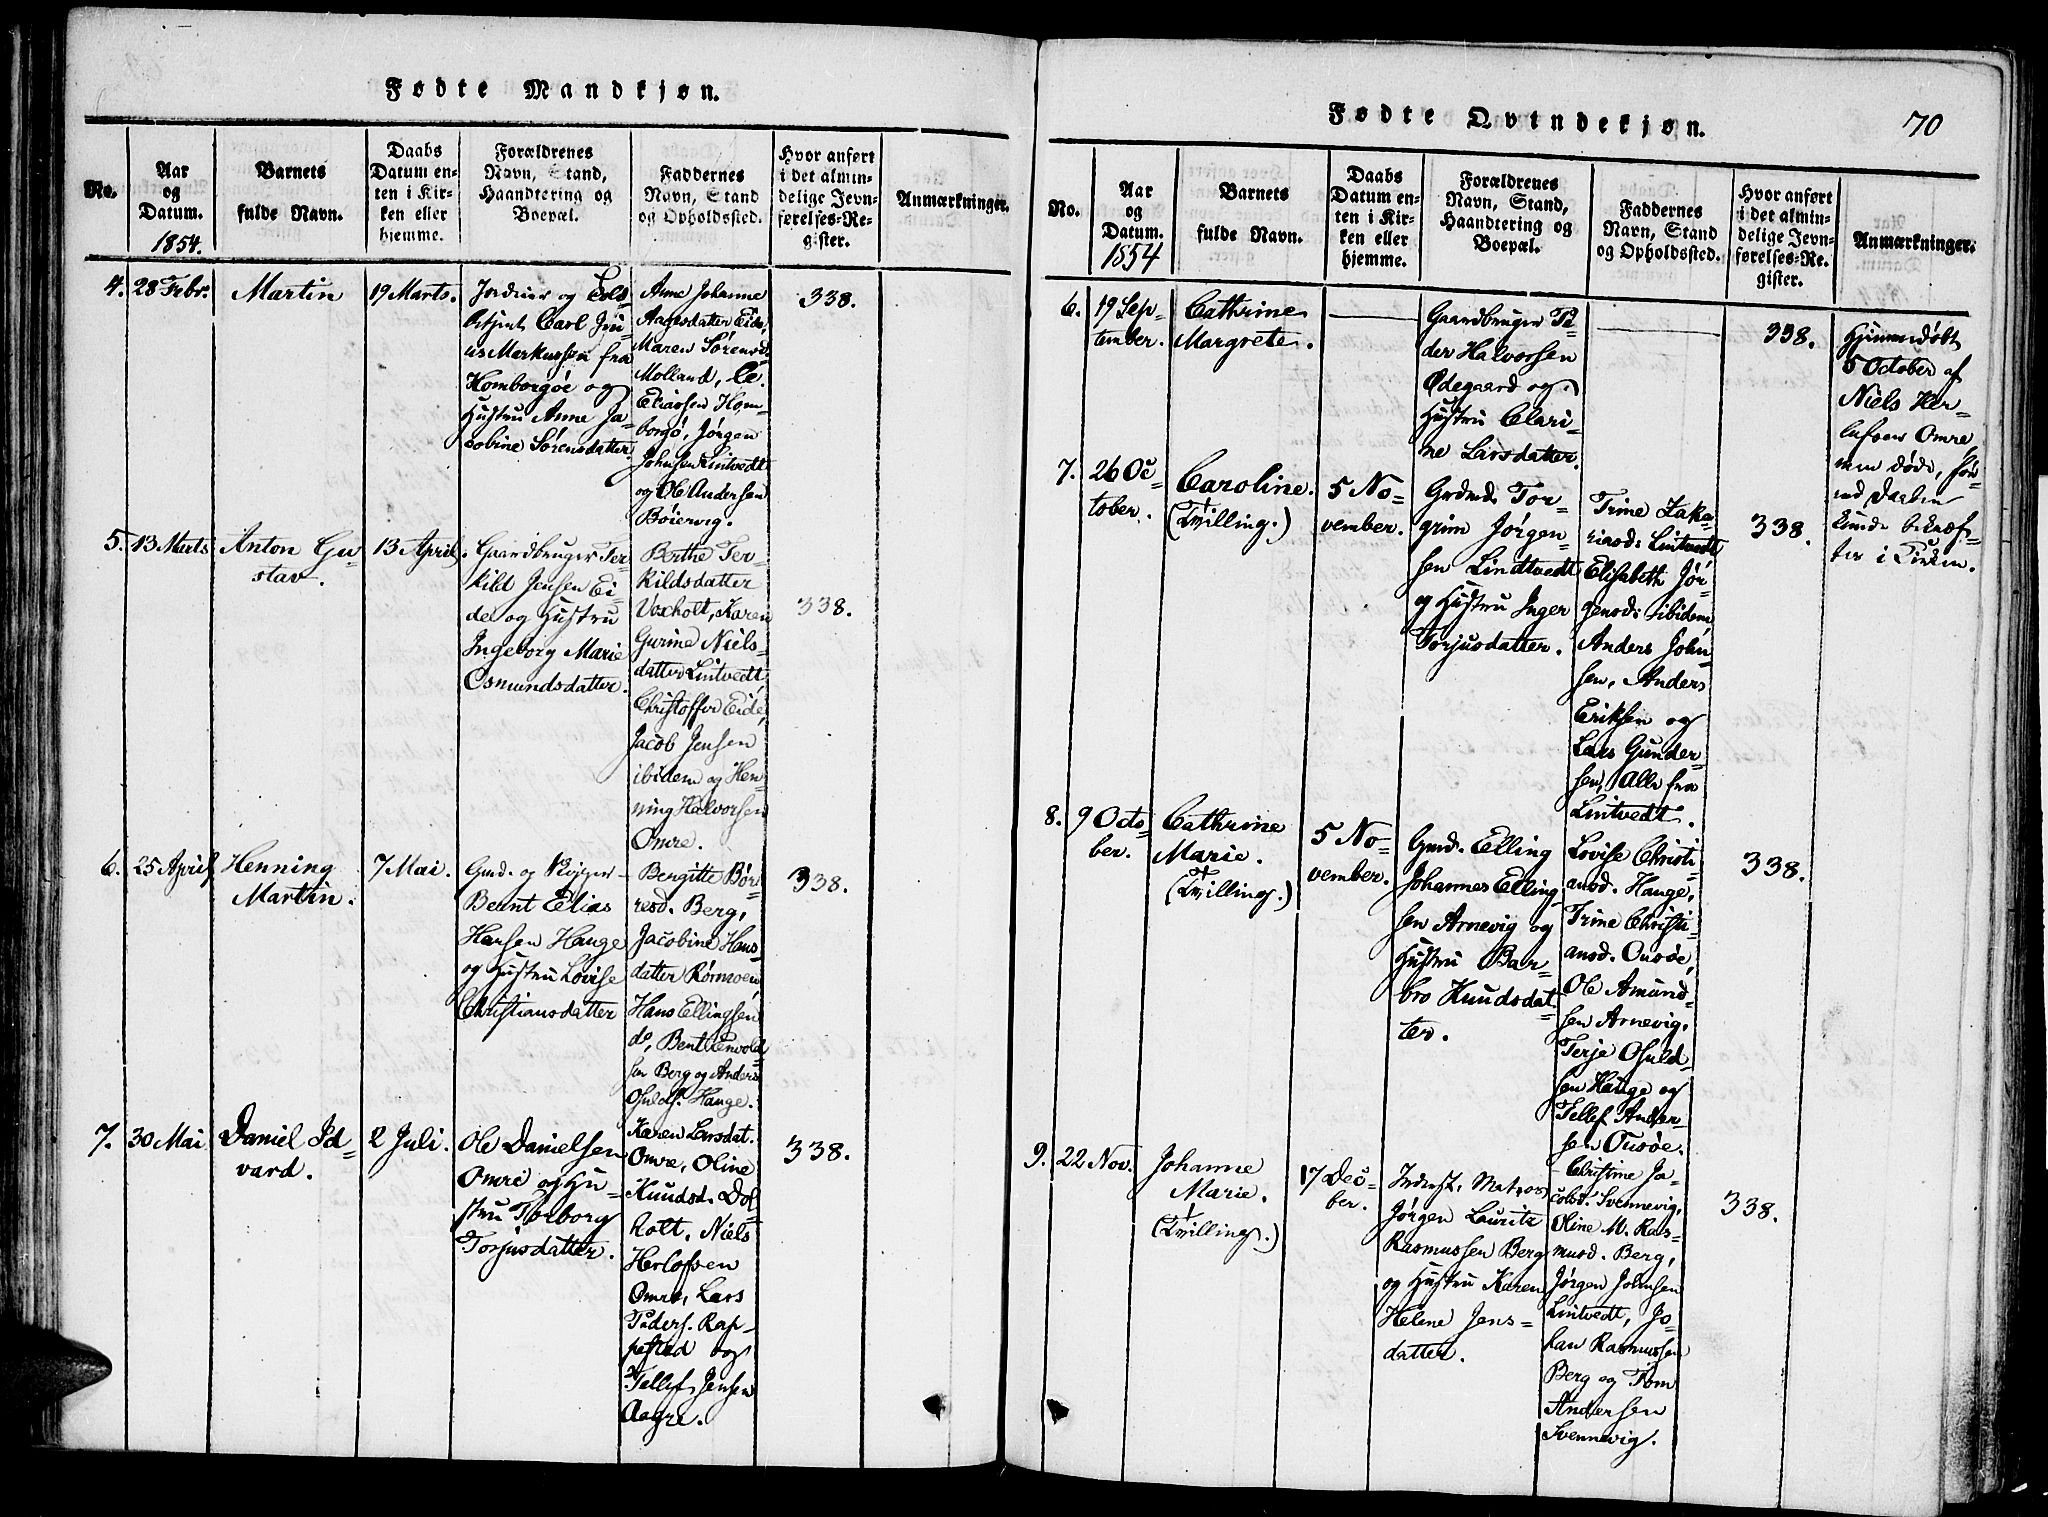 Fødte Mandkjøn.
No.
Aar
og
Datum.
1854.
Barnets
fulde Navn.
Daabs
Datum en-
ten i Kir-
ken eller
hjemme.
Forældrenes
Navn, Stand,
Haandtering og
Boepæl.
Faddernes
Navn, Stand
og Opholdssted.
Hvor anført
i det almin-
delige Jevn-
førelses-Re-
gister.
Anmærkninger.
4.
28 Febr.
Martin
19 Marts.
og
Carl
Markussen fra
Homborgøe og
Hustru Anne Ja-
cobine Sørensdatter.
Anne Johanne
Aagesdatter Eide,
Maren Sørensd.
Molland,
Eliassen Hom-
borgö, Jörgen
Johnsen Lintvedt
og Ole Andersen
Böiervig.
338.
5.
13 Marts
Anton Gu-
stav.
13 April.
Gaardbruger Ter-
kild Jensen Ei-
de og Hustru
Ingeborg Marie
Osmundsdatter.
Berthe Ter-
kildsdatter
Voxholt, Karen
Gurine Niels-
datter Lintvedt,
Christoffer Eide,
Jacob Jensen
ibidem og Hen-
ning Halvorsen
Omre.
338.
6.
25 April
Henning
Martin.
7 Mai.
Gmd. og Rigger
Bernt Elias
Hansen Hauge
og Hustru Lovise
Christiansdatter
Bergitte Bør-
resd. Berg,
Jacobine Hans-
datter Rørmoen
Hans Ellingsen
do, Bent Envold-
sen Berg og Anders
Osulds. Hauge.
338.
7.
30 Mai
Daniel Id-
vard.
2 Juli.
Ole Danielsen
Omre og Hu-
stru Torborg
Torjusdatter.
Karen Larsdat.
Omre, Oline
Knudsd. Dol-
holt, Niels
Herlofsen
Omre, Lars
Peders. Rap-
pestad og
Tellef Jensen
Aagre.
338.
Fødte Qvindekjøn.
70
No.
Aar
og
Datum.
1854
Barnets
fulde Navn.
Daabs
Datum en-
ten i Kir-
ken eller
hjemme.
Forældrenes
Navn, Stand,
Haandtering og
Boepæl.
Faddernes
Navn, Stand
og Opholdssted.
Hvor anført
i det almin-
delige Jevn-
førelses-Re-
gister.
Anmærkninger.
6.
19 Sep-
tember.
Cathrine
Margrete.
Gaardbruger Pe-
der Halvorsen
Ødegaard og
Hustru Clari-
ne Larsdatter.
338.
Hjemmedøbt
5 October af
Niels Her-
lufsen Omre
men døde, før-
end Daaben
kunde bekræf-
tes i Kirken.
7.
26 Oc-
tober.
Caroline.
(Tvilling.)
5 No-
vember.
Grdmd. Tor-
grim Jørgen-
sen Lindtvedt
og Hustru Inger
Torjusdatter.
Trine Zaka-
riasd. Lintvedt
Elisabeth Jør-
gensd. ibidem
Anders John-
sen, Anders
Eriksen og
Lars Gunder-
sen, Alle fra
Lintvedt.
338.
8.
9 Octo-
ber.
Cathrine
Marie.
(Tvilling.)
5 No-
vember.
Gmd. Elling
Johannes Elling-
sen Arnevig og
Hustru Bar-
bro Knudsdat-
ter.
Lovise Christi-
ansd. Hauge,
Trine Christi-
ansd. Ousøe,
Ole Amund-
sen Arnevig,
Terje Osuld-
sen Hauge og
Tellef Ander-
sen Ousøe.
338.
9.
22 Nov.
Johanne
Marie.
(Tvilling.)
17 Decem-
ber.
Inderst. Matros
Jørgen Lauritz
Rasmussen Berg
og Hustru Karen
Helene Jens-
datter.
Christine Ja-
cobsd. Svennevig,
Oline M. Ras-
musd. Berg,
Jørgen Johnsen
Lintvedt, Jo-
han Rasmussen
Berg og Tom
Andersen
Svennevig.
338.